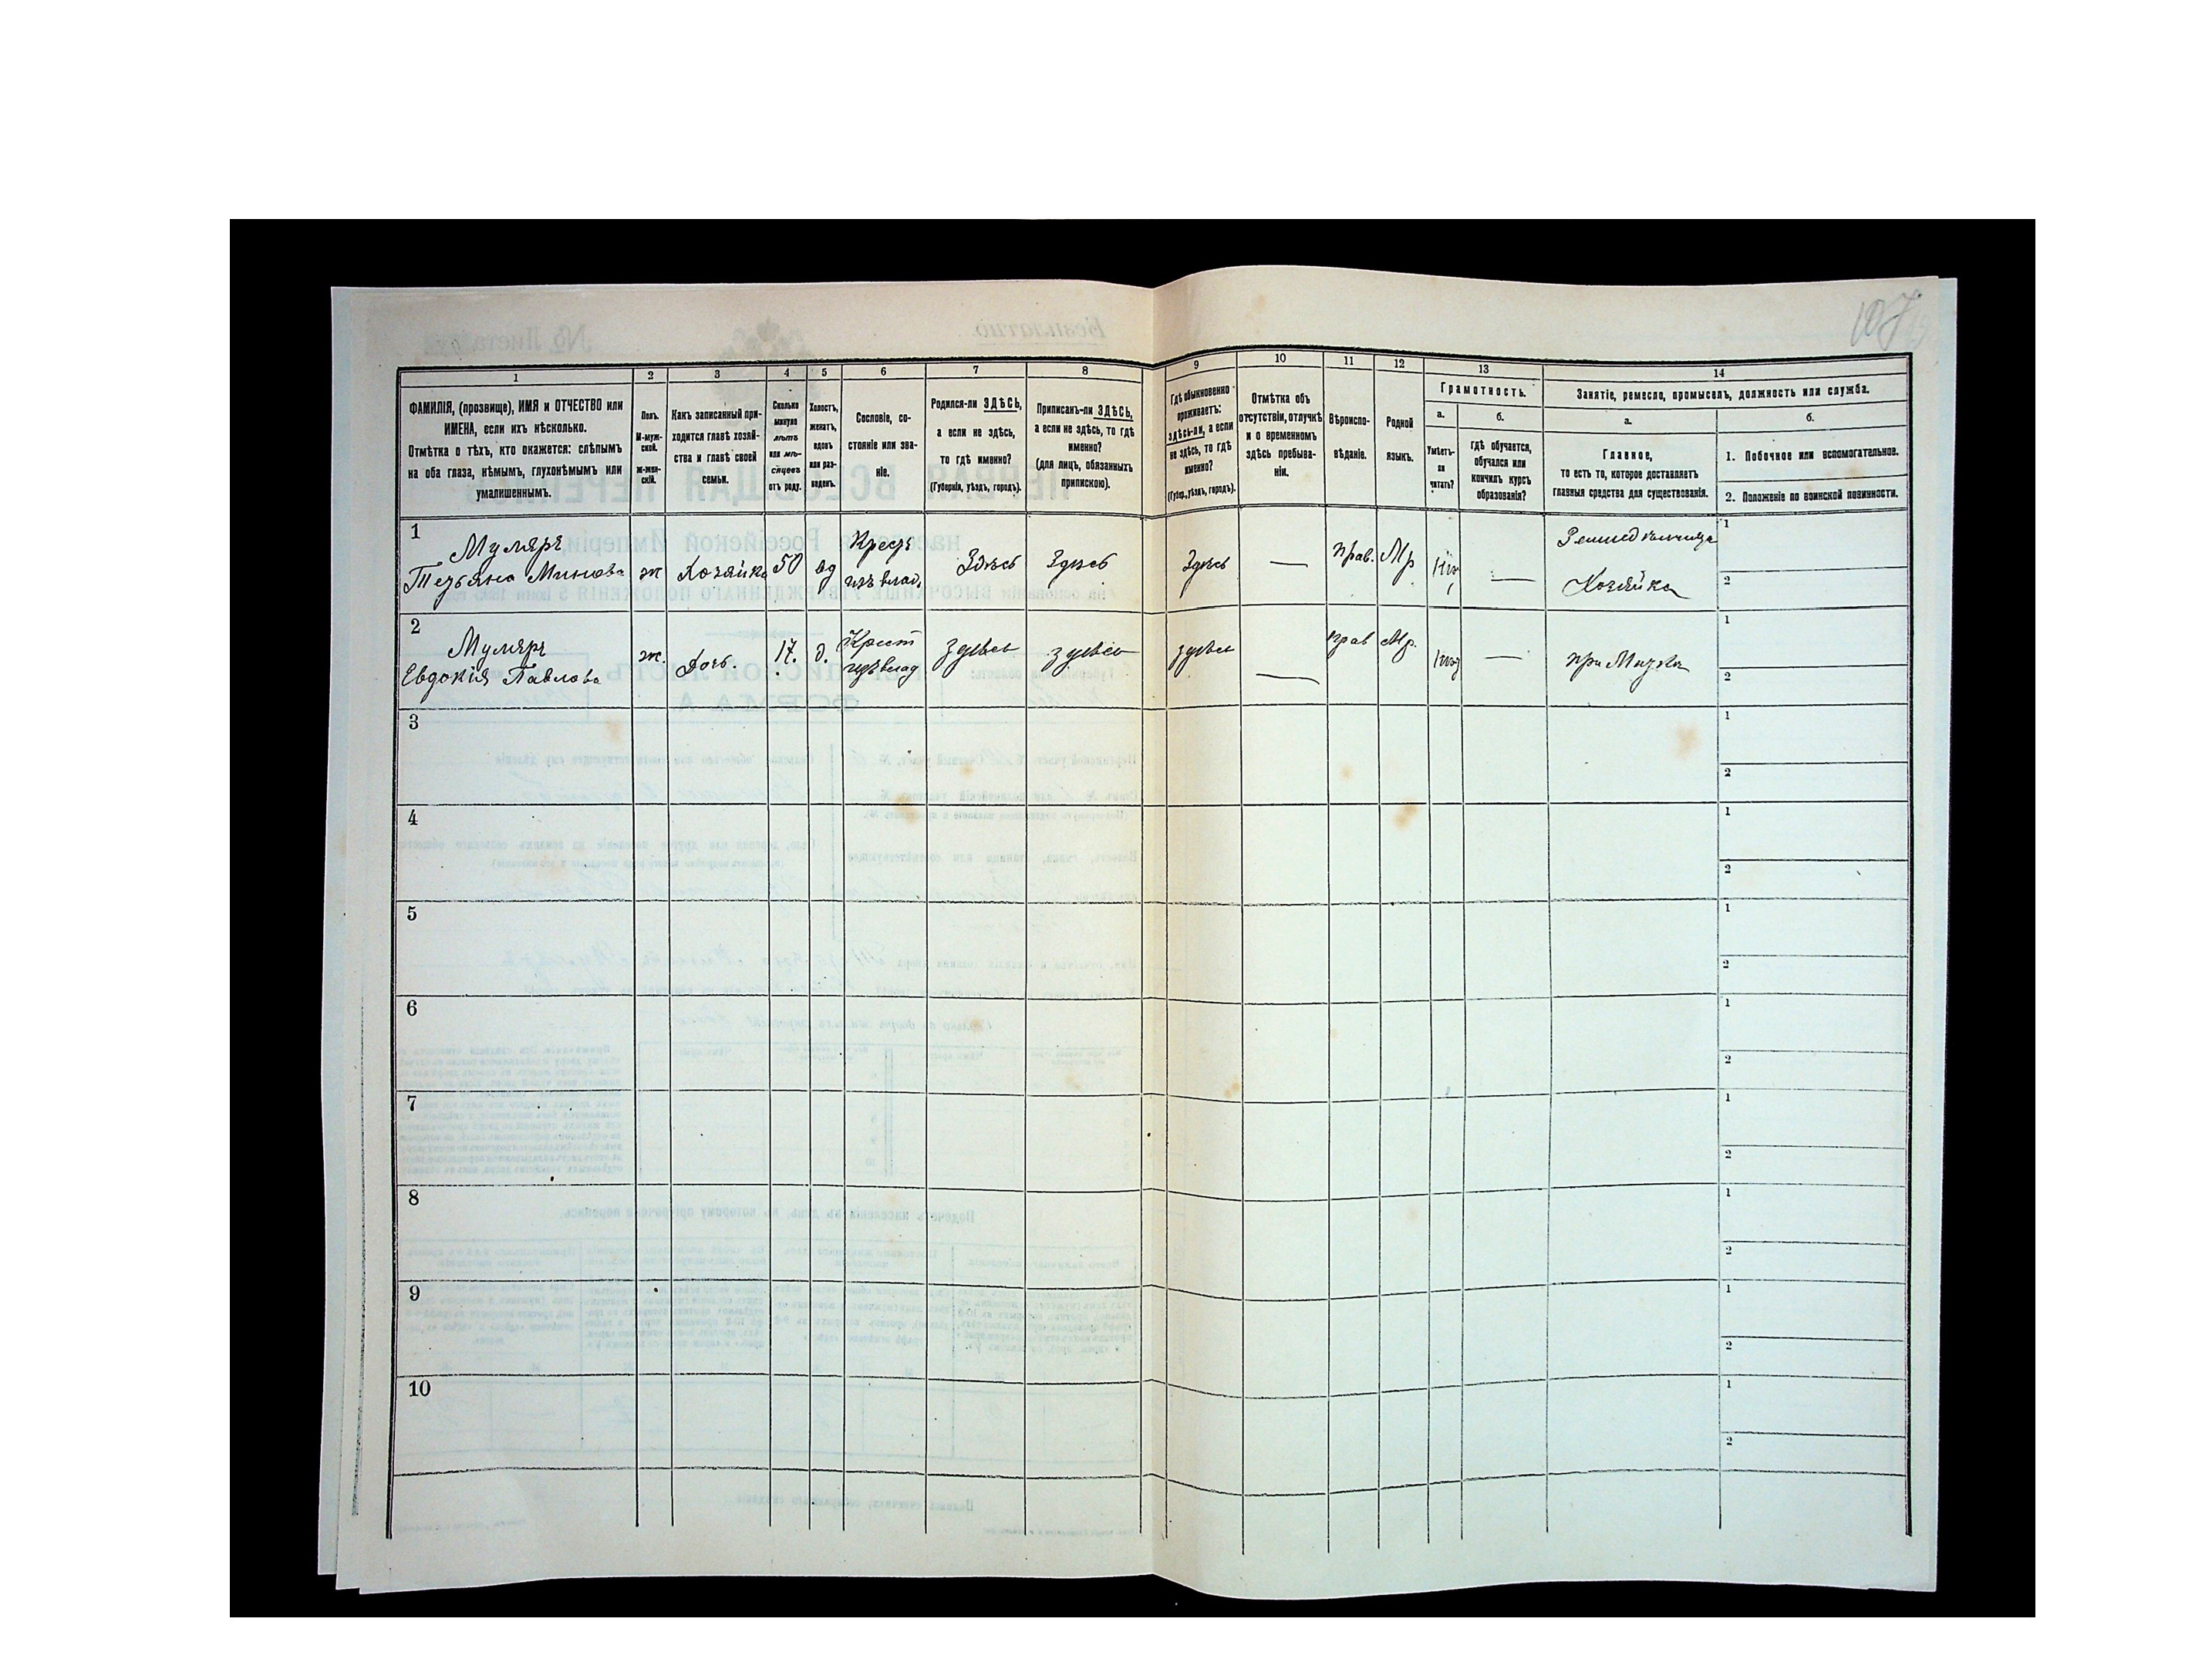 107
1
2
3
4
5
6
7
8
9
10
11
12
13
14
ФАМИЛІЯ, (прозвище), ИМЯ и ОТЧЕСТВО или
ИМЕНА, если ихъ нѣсколько.
Отмѣтка о тѣхъ, кто окажется: слѣпымъ
на оба глаза, нѣмымъ, глухонѣмымъ или
умалишеннымъ.
Полъ.
М-муж-
ской.
ж-жен-
скій.
Какъ записанный при-
ходится главѣ хозяй-
ства и главѣ своей
семьи.
Сколько
минуло
лѣтъ
или мѣ-
сяцевъ
отъ роду.
Холостъ,
женатъ,
вдовъ
или раз-
веденъ.
Сословіе, со-
стояніе или зва-
ніе.
Родился-ли ЗДѢСЬ,
а если не здѣсь,
то гдѣ именно?
(Губернія, уѣздъ, городъ).
Приписанъ-ли ЗДѢСЬ,
а если не здѣсь, то гдѣ
именно?
(для лицъ, обязанныхъ
припискою).
Гдѣ обыкновенно
проживаетъ:
здѣсь-ли, а если
не здѣсь, то гдѣ
именно?
(Губер., уѣздъ, городъ).
Отмѣтка объ
отсутствіи, отлучкѣ
и о временномъ
здѣсь пребыва-
ніи.
Вѣроиспо-
вѣданіе.
Родной
языкъ.
Грамотность.
а.
б.
Умѣетъ-
ли
читать?
Гдѣ обучается,
обучался или
кончилъ курсъ
образованія?
Занятіе, ремесло, промыселъ, должность или служба.
а.
б.
Главное,
то есть то, которое доставляетъ
главныя средства для существованія.
1. Побочное или вспомогательное.
2. Положеніе по воинской повинности.
1
Муляръ
Тетьяна Минова
ж
Хозяйка
50
вд
из влад.
Здѣсь
Здѣсь
Здѣсь
—
прав.
Мр
—
Хозяйка
1
2
2
Муляръ
Евдокія Павлова
ж.
Дочь.
17.
д.
Крест
изъ влад
здѣсь
здѣсь
здѣсь
—
прав
Мр.
—
при
1
2
3
1
2
4
1
2
5
1
2
6
1
2
7
1
2
8
1
2
9
1
2
10
1
2